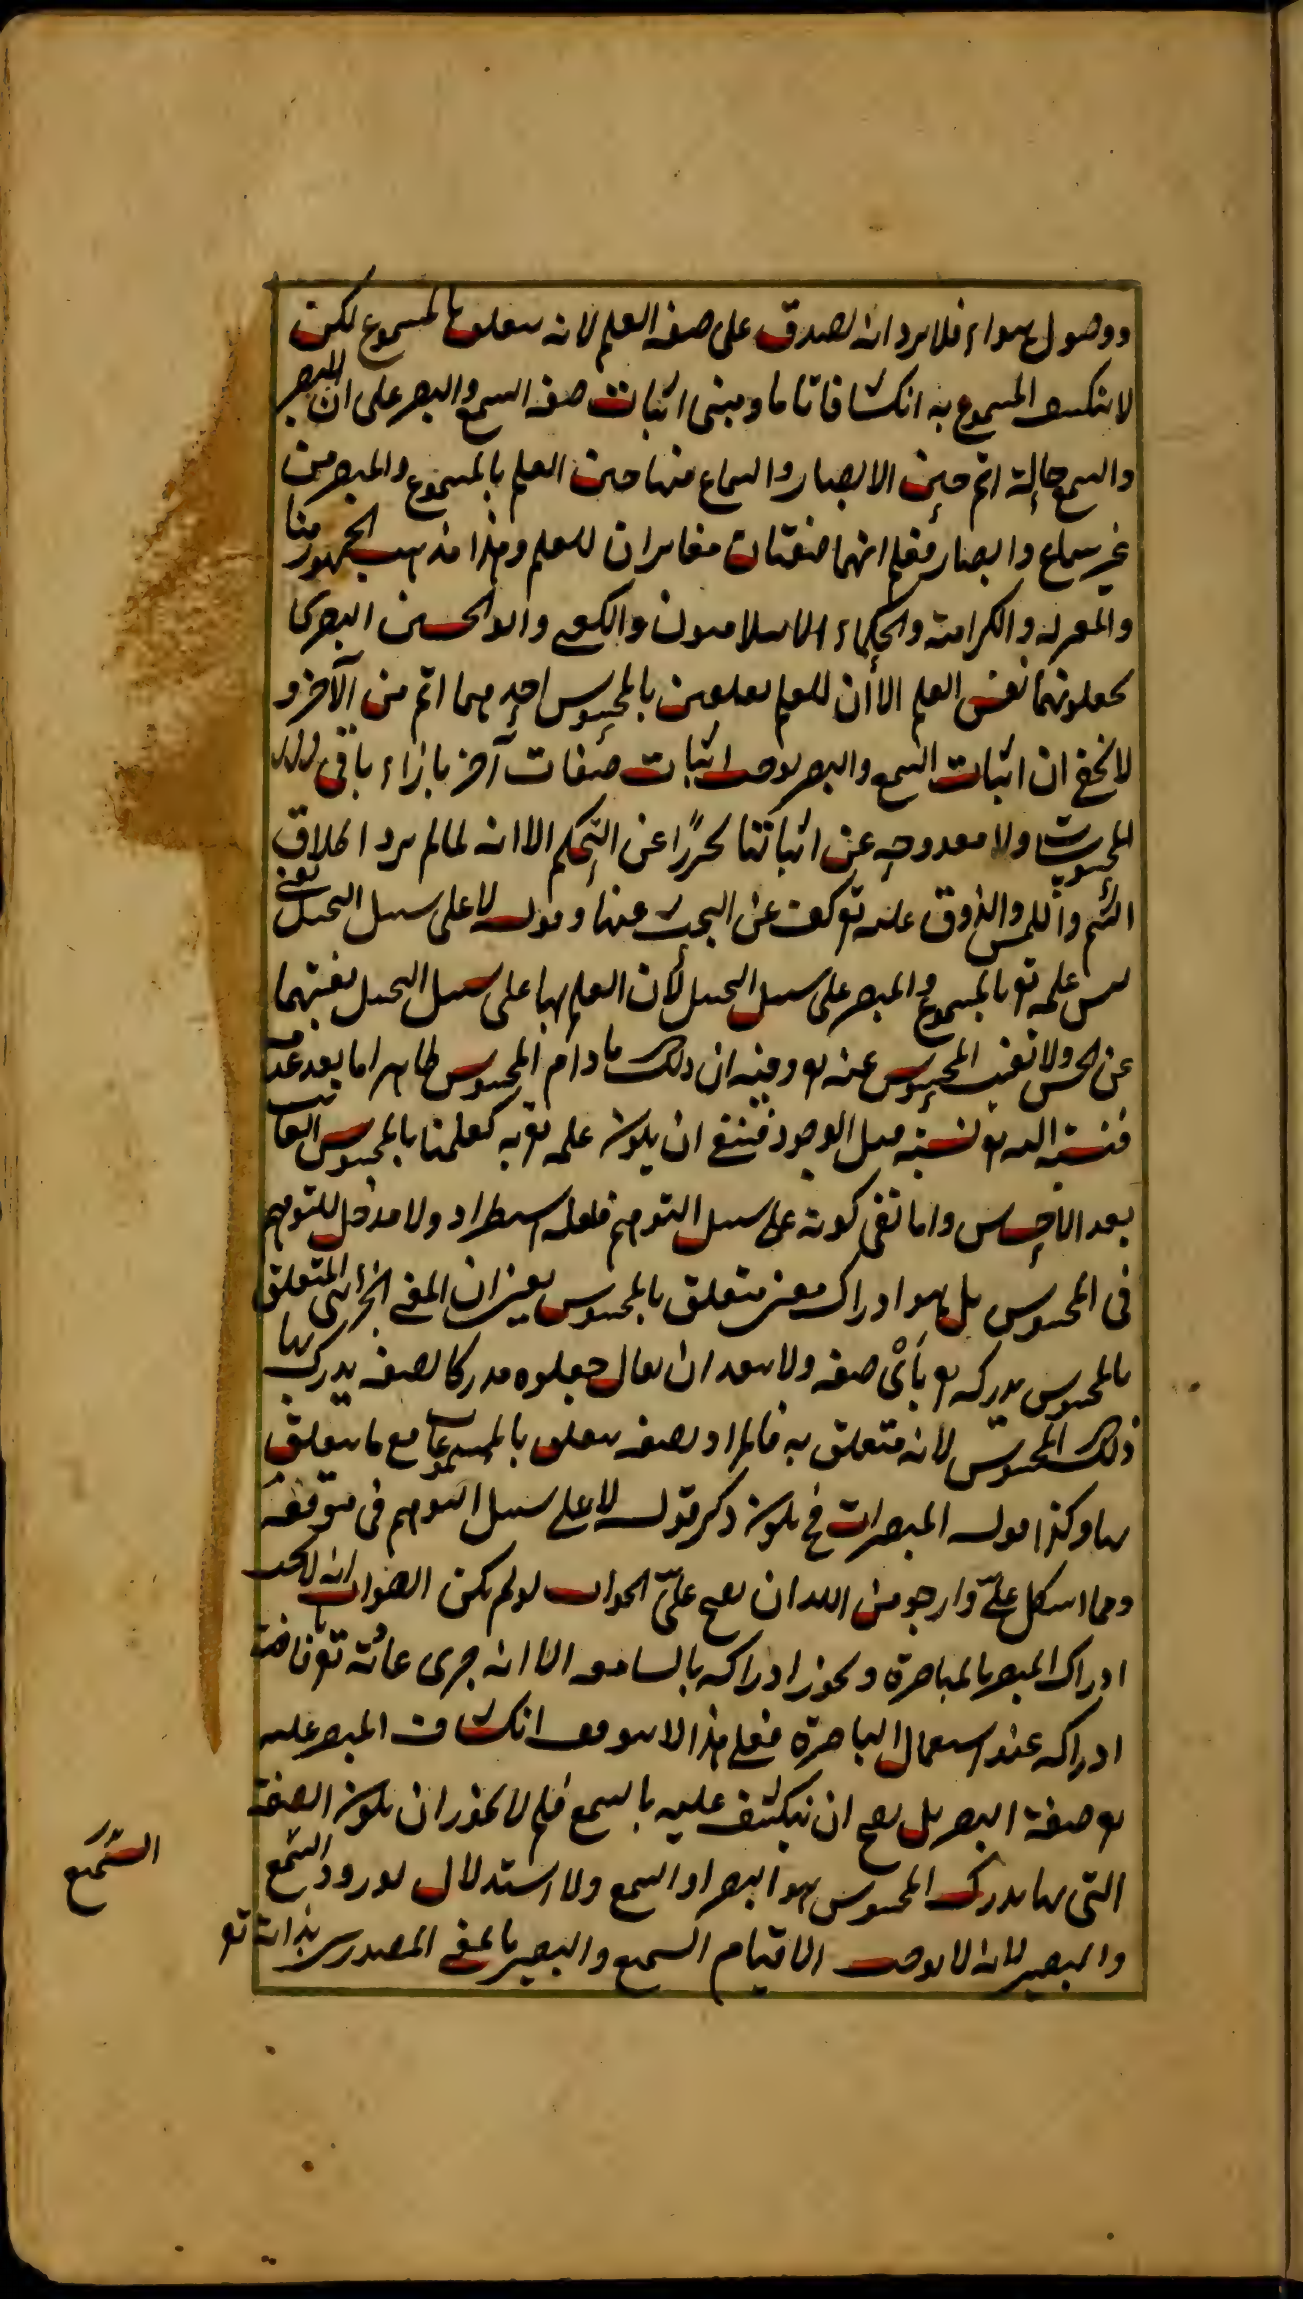 ووصول هواء فلا يرد انه يصدق على صفة العلم لانه يتعلق بالمسموع لكن
لا ينكشف المسموع به انكشافا تاما ومبنى اثبات صفة السمع والبصر على ان للبصر
والسمع حالة اتم حين الابصار والسماع منها حين العلم بالمسموع والمبصر من
غير سماع وابصار فعلم انهما صفتان مغايران للعلم وهذا مذهب الجمهور منا
والمعتزلة والكرامية والحكماء الاسلاميون والكعبى وابو الحسين البصرى
يجعلونهما نفس العلم الا أن للعلم تعلقين بالمحسوس احدهما اتم من الآخر و
لا يخفى ان اثبات السمع والبصر يوجب اثبات صفات آخر بازاء باقى
المحسوسات ولا يعد وجه عن اثباتنا تحرزا عن التحكم الا انه لما لم يرد اطلاق
الشم واللمس والذوق عليه تع كف عن البحث عنها وقوله لا على سبيل التخيل يعنى
ليس علمه تع بالمسموع والمبصر على سبيل التخيل لأن العلم بها على سبيل التخيل بغيبتهما
عن الحس ولا يغيب المحسوس عنه تع وفيه ان ذلك ما دام المحسوس ظاهرا ما بعد عدمه
فنسبته اليه تع نسبة قبل الوجود فينبغى ان يكون علمه تع به كعلمنا بالمحسوس الغائب
بعد الاحساس واما نفى كونه على سبيل التوهم فلعله استطراد ولا مدخل للتوهم
فى المحسوس بل هو ادراك معنى متعلق بالمحسوس يعنى ان المعنى الجزئى المتعلق
بالمحسوس يدركه تع بأى صفة ولا يبعد ان يقال جعلوه مدركا بصفة يدرك بها
ذلك المحسوس لانه متعلق به فالمراد بصفة يتعلق بالمسموعات مع ما يتعلق
بها وكذا قوله المبصرات فح يكون ذكر قوله لا على سبيل التوهم فى موقعه
ومما اشكل علىّ وارجو من الله ان يفتح علىّ الجواب لو لم يكن الصواب انه لا يجب
ادراك المبصر بالمباصرة ويجوز ادراكه بالسامعة الا انه جرى عادته تع بافاضة
ادراكه عند استعمال الباصرة فعلى هذا لا يتوقف انكشاف المبصر عليه
تع صفة البصر بل يصح ان ينكشف عليه بالسمع فلم لا يجوز ان يكون الصفة
التى بها يدرك المحسوس هو البصر او السمع ولا استدلال بورود السمع
والبصير لانه لا يوجب الا قيام السميع والبصير بالمعنى المصدرى بذاته تع
السميع